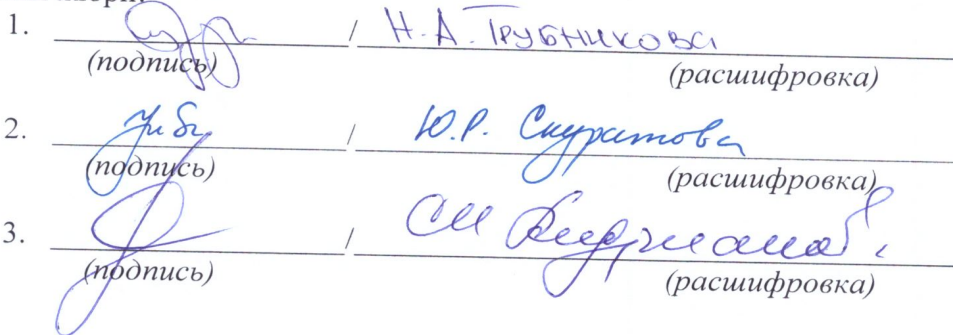 1. / Н.А. Трубникова
(подпись) (расшифровка)
2. / Ю.Р. Скуратова
(подпись) (расшифровка)
3. / СИ
(подпись) (расшифровка)